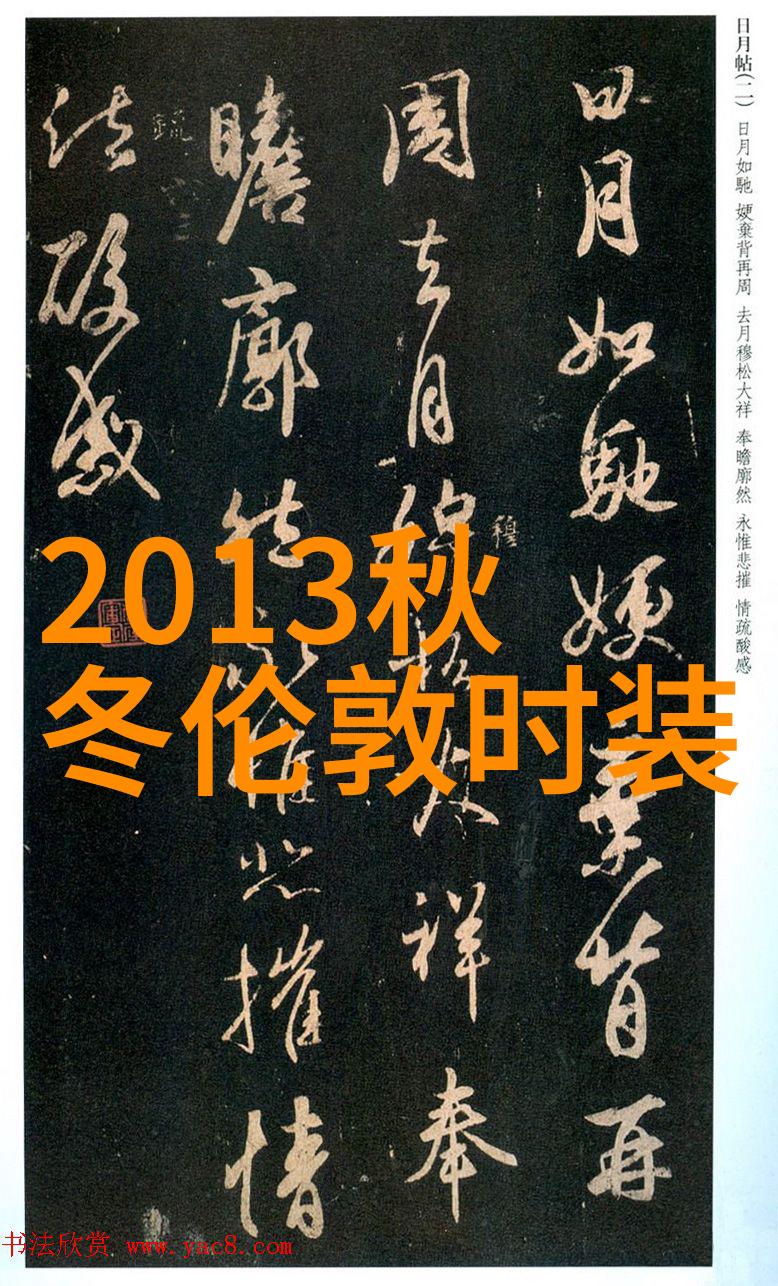 日月帖(二) 日月如馳 㛹棄背再周 去月穆松大祥 奉瞻廓然 永惟悲摧 情疏酸感
日月如馳㛹棄背再
周去月穆松大祥奉
穆
瞻廓然永惟悲摧情
疏
酸感
2013秋
冬伦敦时装
书法欣赏 www.yac8.com